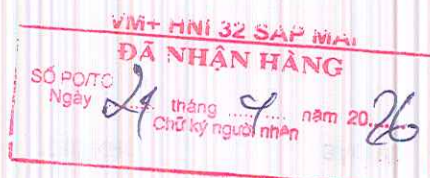 VM+ HNI 32 SAP MAI
ĐÃ NHẬN HÀNG
SỐ PO/TO
Ngày 24 tháng 4 năm 2026
Chữ ký người nhận